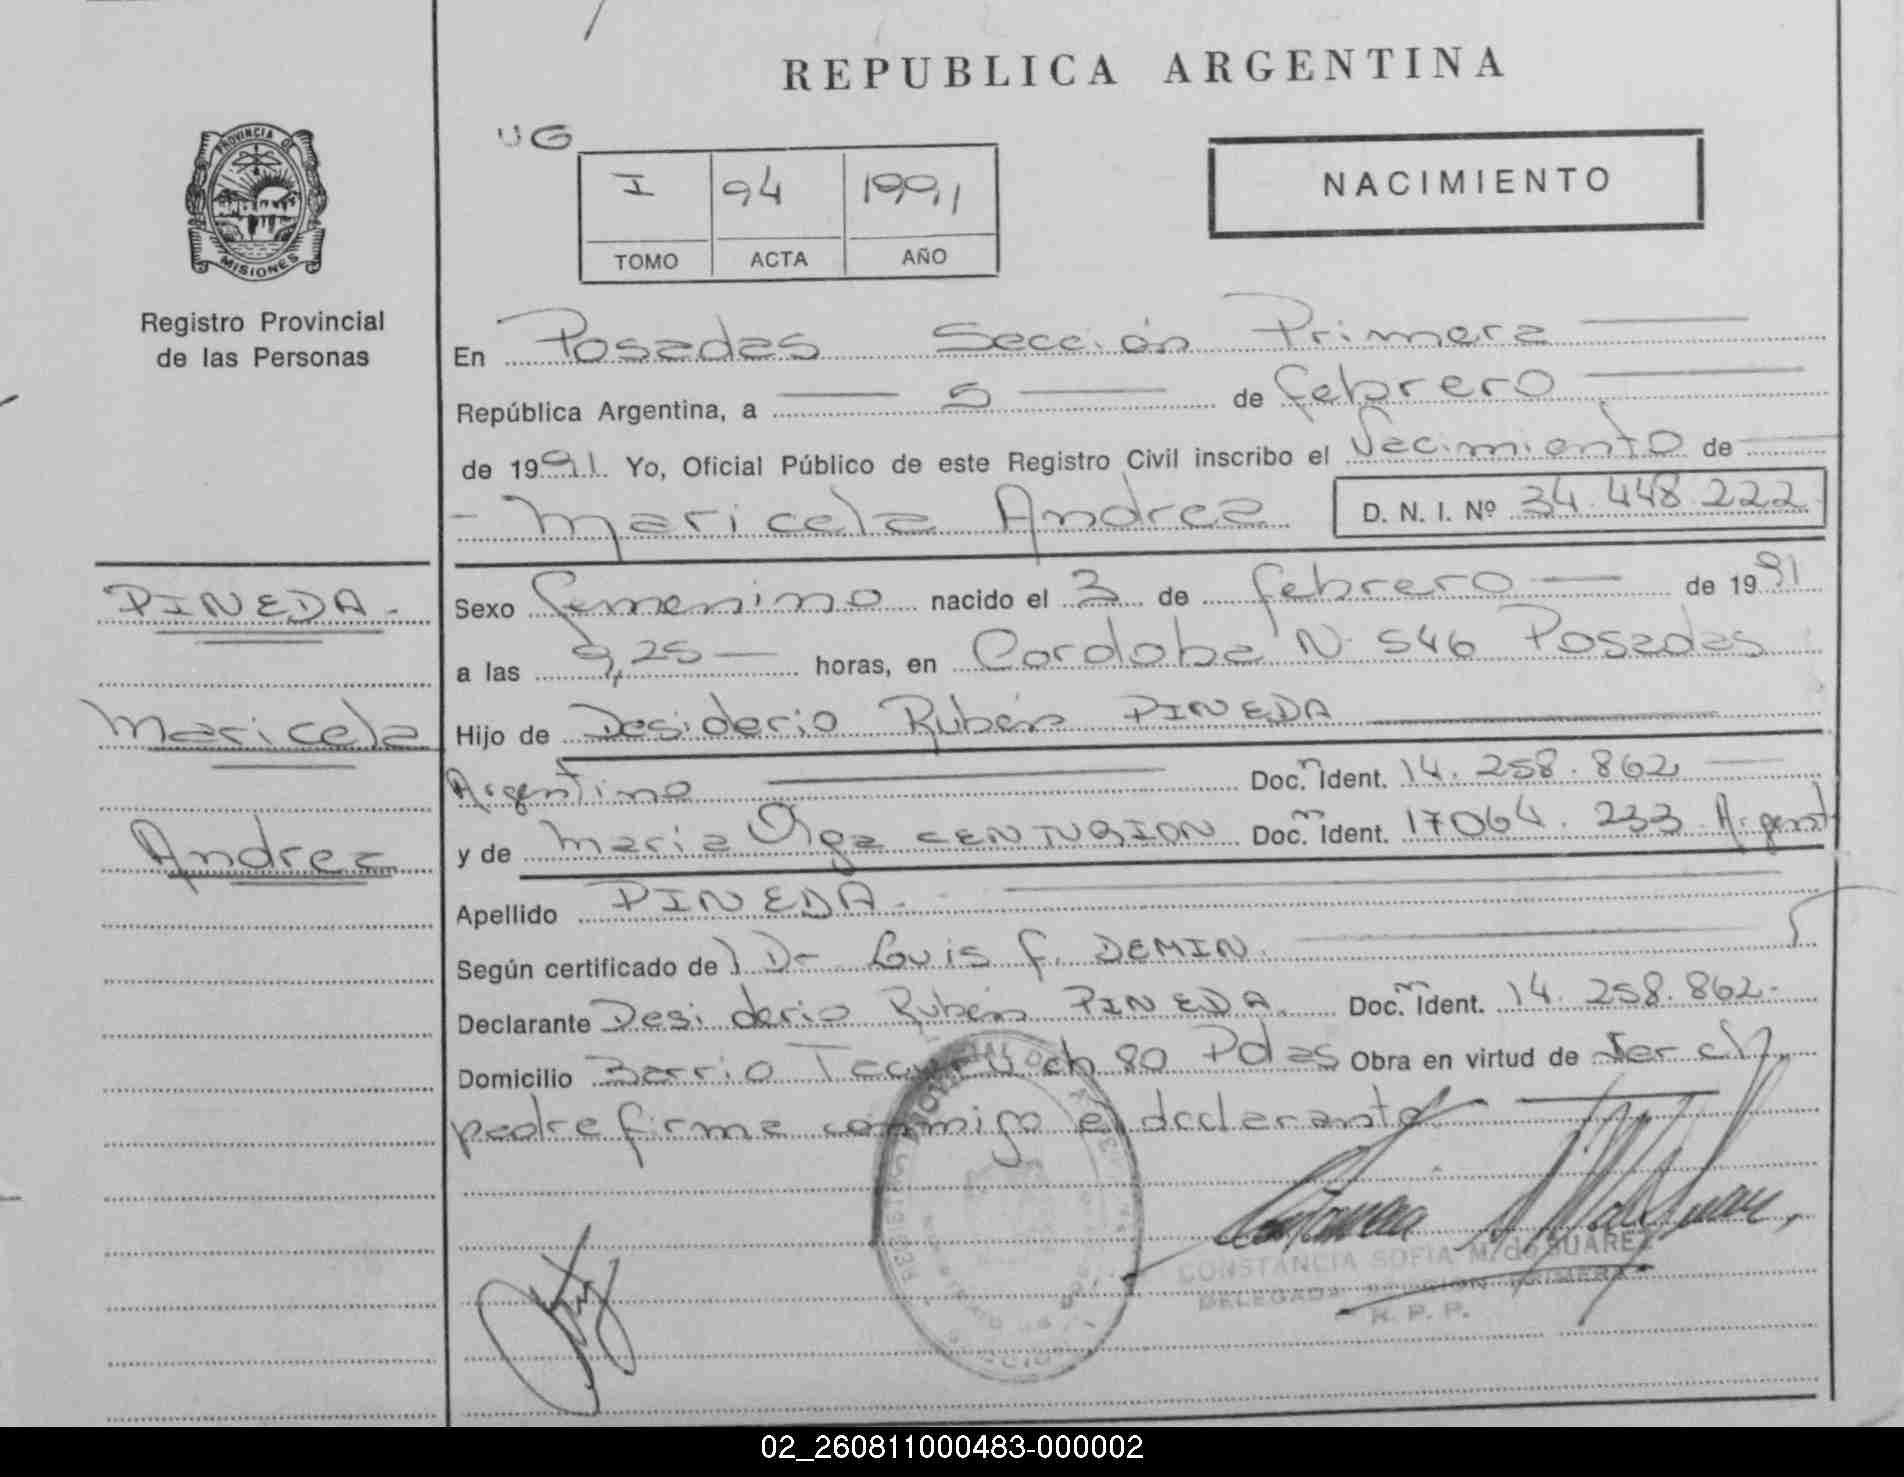 REPUBLICA ARGENTINA
UG
I 94 1991
TOMO ACTA AÑO
NACIMIENTO
PROVINCIA DE
MISIONES
Registro Provincial
de las Personas
En Posadas Sección Primera
República Argentina, a 5 de febrero
de 1991. Yo, Oficial Público de este Registro Civil inscribo el Nacimiento de
Maricela Andrea D. N. I. Nº 34.448.222
PINEDA.
Maricela
Andrea
Sexo femenino nacido el 3 de febrero de 1991
a las 9,25 horas, en Cordoba N. 546 Posadas
Hijo de Desiderio Rubén PINEDA
Argentino Doc. Ident. 14.258.862
y de Maria Olga CENTURION Doc. Ident. 17064.233 Argent
Apellido PINEDA.
Según certificado del Dr Luis F. DEMIN.
Declarante Desiderio Rubén PINEDA. Doc. Ident. 14.258.862.
Domicilio Barrio ch 80 Pdas Obra en virtud de ser el
padre firma conmigo el declarante
CONSTANCIA SOFIA M. de SUAREZ
DELEGADA SECCION PRIMERA
R. P. P.
02_260811000483-000002